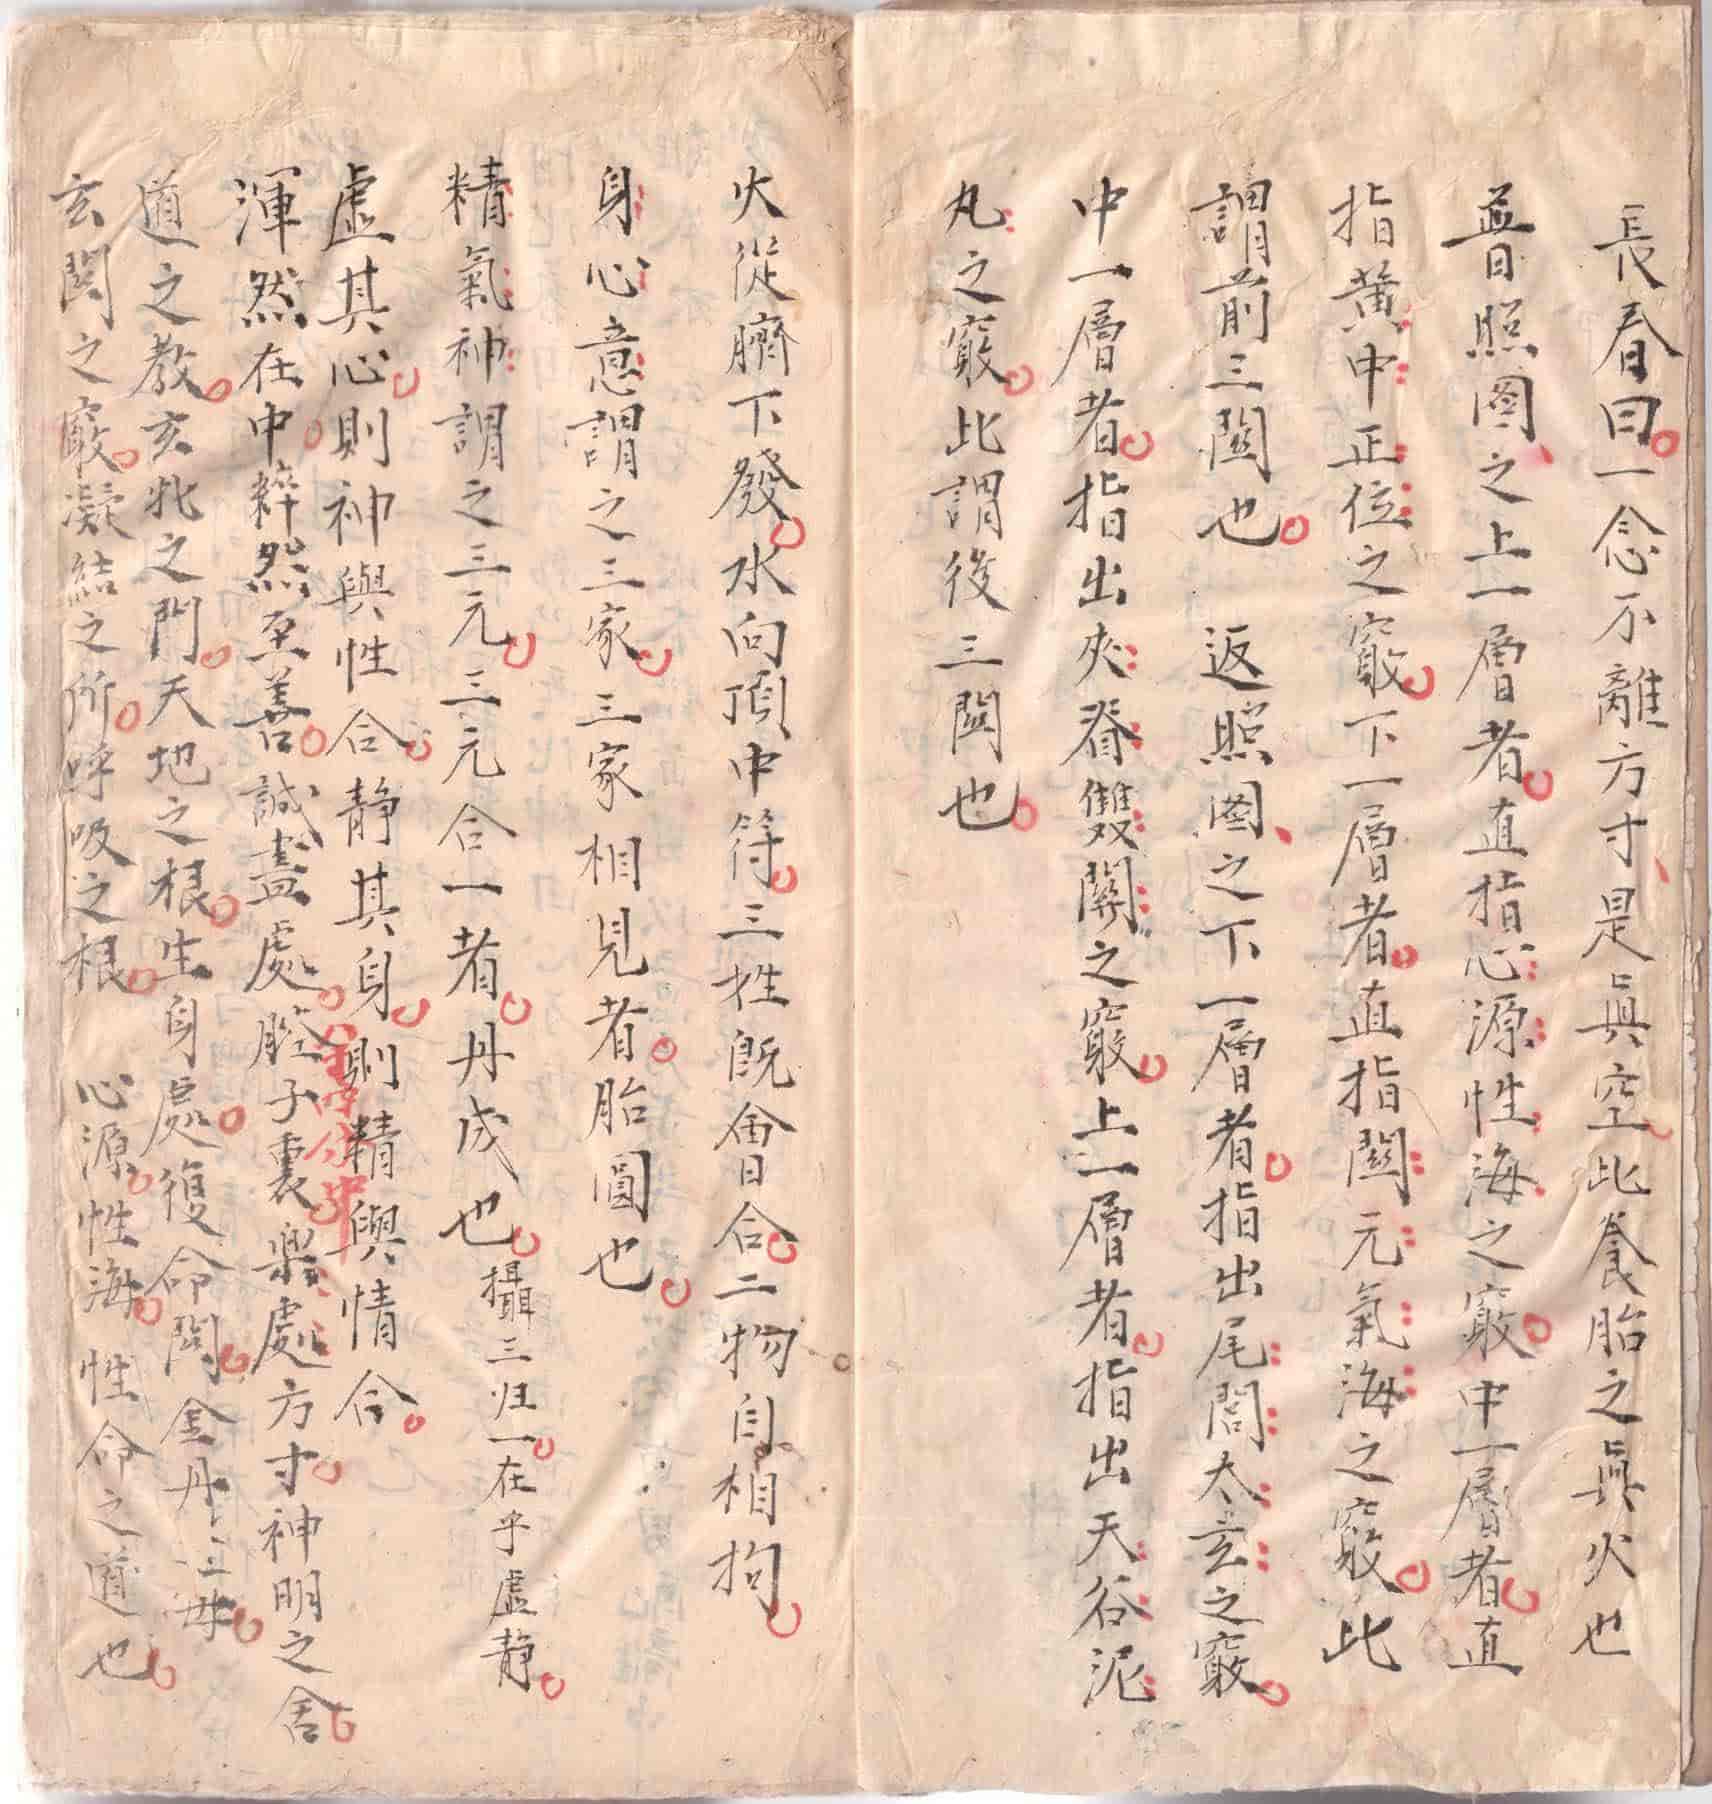 長春曰一念不離方寸是眞空此養胎之眞火也
普照图之上一層者直指心源性海之竅中一層者直
指黄中正位之竅下一層者直指関元氣海之竅此
謂前三関也　返照図之下一層者指出尾閭太玄之竅
中一層者指出夾脊雙關之竅上一層者指出天谷泥
丸之竅此謂後三関也
火從臍下發水向頂中符三姓旣會合二物自相拘
身心意謂之三家三家相見者胎圓也
精氣神謂之三元三元合一者丹成也攝三归一在乎虛静
虛其心則神與性合静其身則精與情合
渾然在中粹然至善誠盡處腔子裏樂處方寸神明之舍
道之教玄牝之門天地之根生身處復命関金丹之母
玄関之竅凝結之所呼吸之根　心源性海　性命之道也